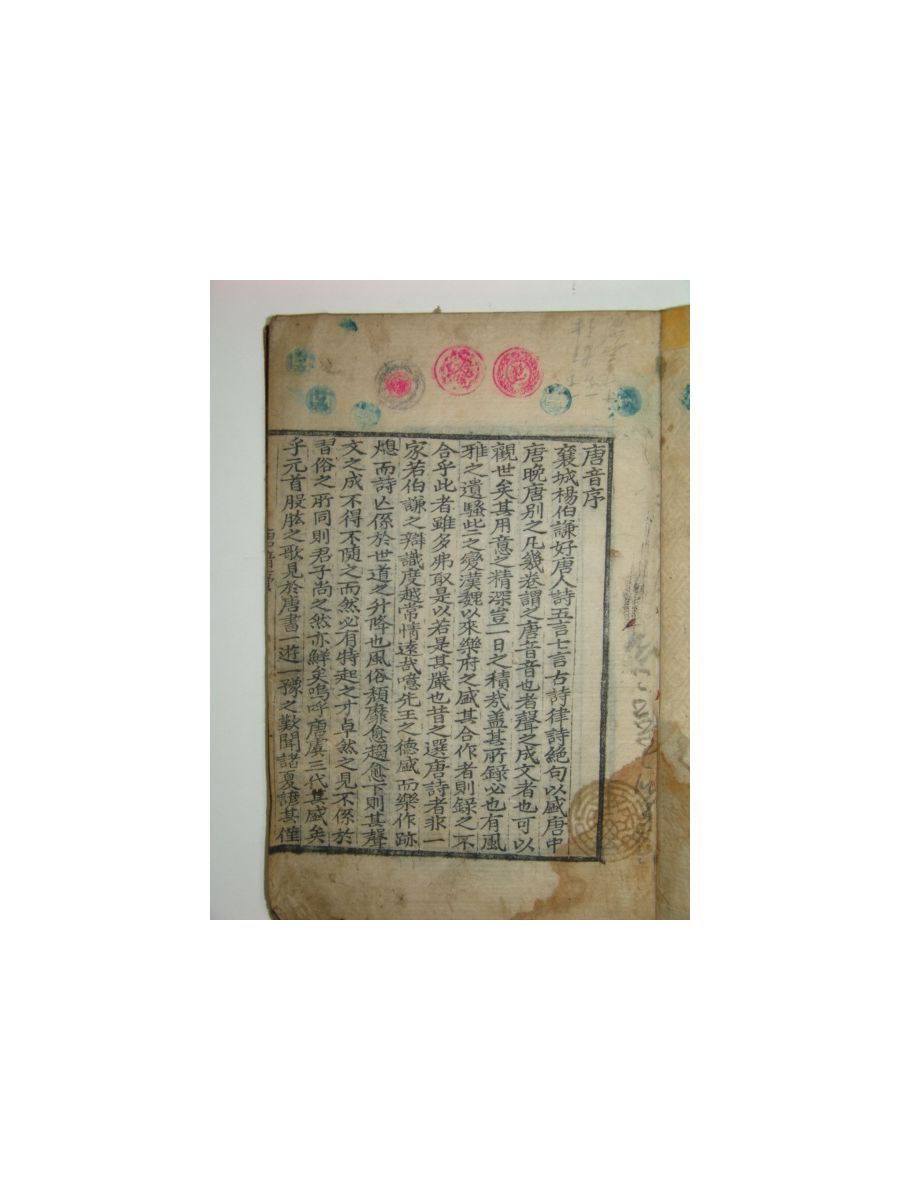 唐音序
襄城楊伯謙好唐人詩五言七言古詩律詩絶句以盛唐中
唐晚唐別之凡幾卷謂之唐音音也者聲之成文者也可以
觀世矣其用意之精深豈一日之積㢤盖其所録必也有風
雅之遺騷些之變漢魏以來樂府之盛其合作者則録之不
合乎此者雖多弗取是以若是其嚴也昔之選唐詩者非一
家若伯謙之辯識度越常情遠㢤噫先王之德盛而樂作跡
熄而詩亡係於世道之升降也風俗頽靡愈趨愈下則其聲
文之成不得不随之而然必有特起之才卓然之見不係於
習俗之所同則君子尚之然亦鮮矣嗚呼唐虞三代其盛矣
乎元首股肱之歌見於唐書一遊一豫之歎聞諸夏諺其僅